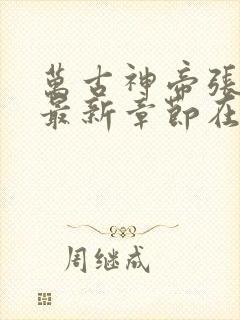 萬古神帝張
最新章節在
周继成